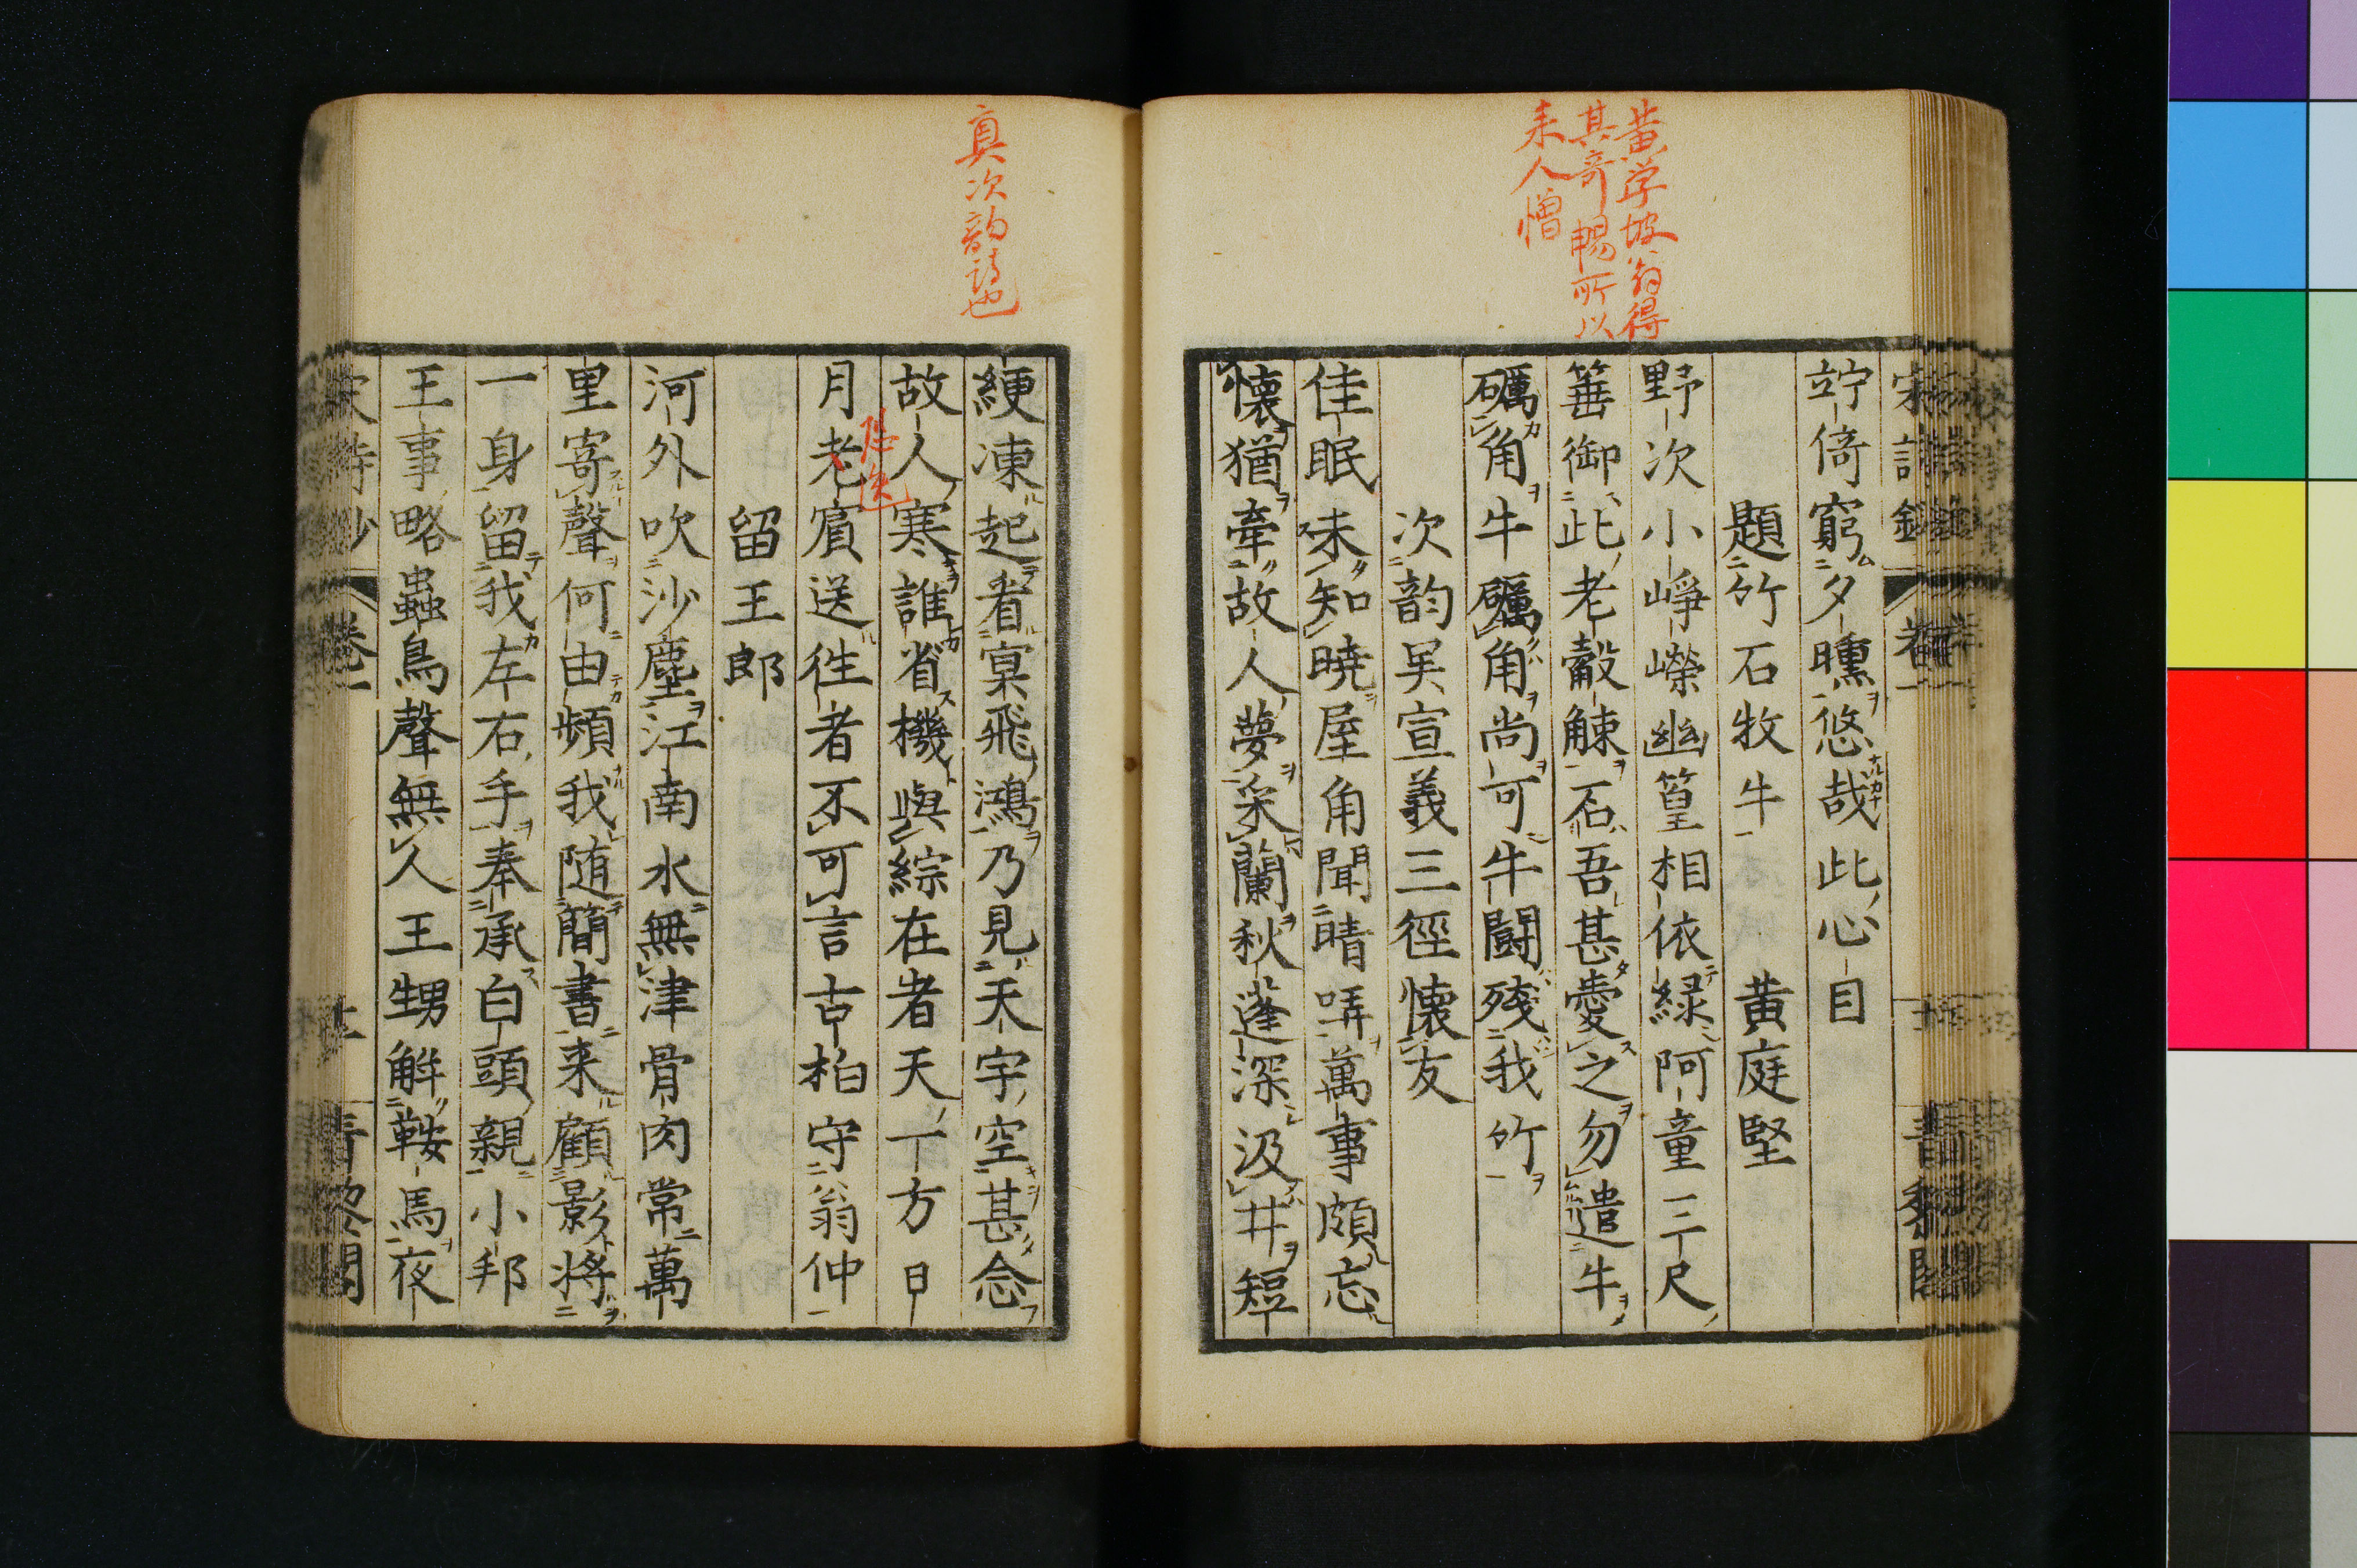 黄学坡翁得
其奇暢所以
来人憎
竚倚窮夕曛悠哉此心目
題竹石牧牛 黄庭堅
野次小崢嶸幽篁相依緑阿童三尺
箠御此老觳觫石吾甚愛之勿遣牛
礪角牛礪角尚可牛闘残我竹
次韵吴宣義三徑懷友
佳眠未知曉屋角聞晴哢萬事頗忘
懷猶牽故人夢采蘭秋蓬深汲井短
真次韵詩也
綆凍起看冥飛鴻乃見天宇空甚念
故人寒誰省機與綜在者天一方日
月老賓送徃者不可言古柏守翁仲
留王郎
河外吹沙塵江南水無津骨肉常萬
里寄聲何由頻我随簡書来顧影將
一身留我左右手奉承白頭親小邦
王事略蟲鳥聲無人王甥觧鞍馬夜